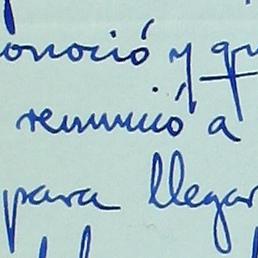 onoció y qu
renunció a
para llegar